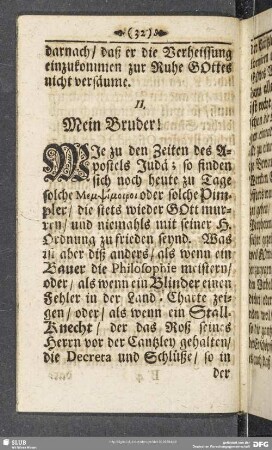 (32)
darnach/ daß er die Verheissung
einzukommen zur Ruhe GOttes
nicht versäume.
II.
Mein Bruder!
WIe zu den Zeiten des A-
postels Judä; so finden
sich noch heute zu Tage
solche Μεμψίμοιροι oder solche Pim-
pler/ die stets wieder GOtt mur-
ren/ und niemahls mit seiner H.
Ordnung zu frieden seynd. Was
ist aber diß anders/ als wenn ein
Bauer die Philosophie meistern/
oder/ als wenn ein Blinder einen
Fehler in der Land-Charte zei-
gen/ oder/ als wenn ein Stall-
Knecht/ der das Roß seines
Herrn vor der Cantzley gehalten/
die Decreta und Schlüße/ so in
der
SLUB
DFG